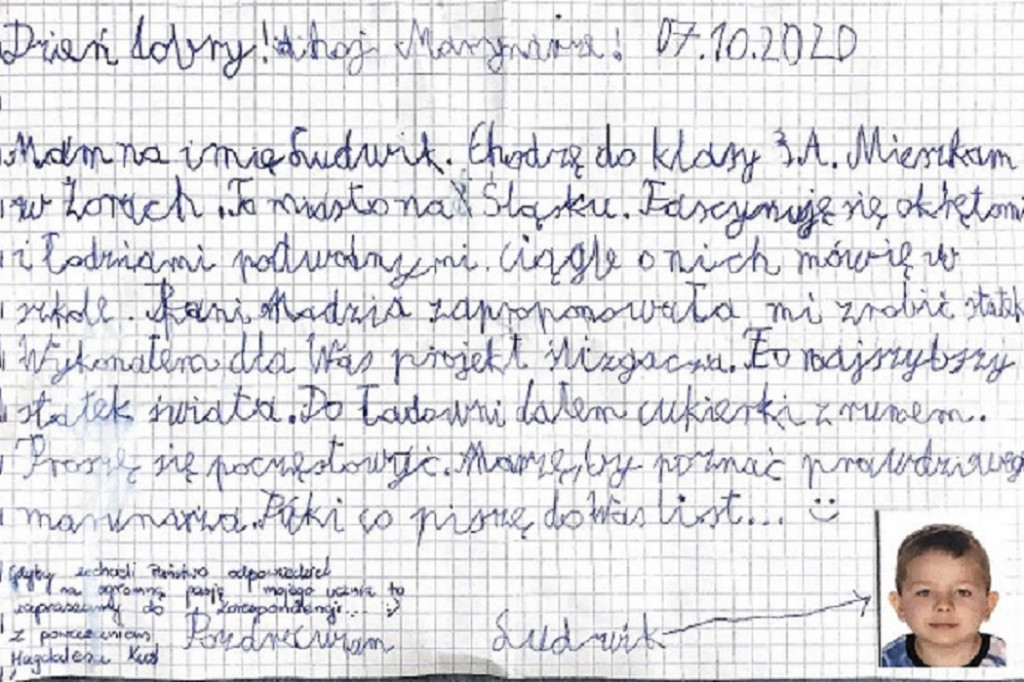 Dzień dobry! Ahoj Marynarze! 07.10.2020
Mam na imię Ludwik. Chodzę do klasy 3A. Mieszkam
w Żorach. To miasto na Śląsku. Fascynuję się okrętami
i łodziami podwodnymi. Ciągle o nich mówię w
szkole. Pani Madzia zaproponowała mi zrobić statek
Wykonałem dla Was projekt ślizgacza. To najszybszy
statek świata. Do ładowni dałem cukierki z rumem.
Proszę się poczęstować. Marzę, by poznać prawdziwego
marynarza. Póki co piszę do Was list... :)
Gdyby zechcieli Państwo odpowiedzieć
na ogromną pasję mojego ucznia to
zapraszamy do korespondencji... :)
z poważaniem
Magdalena
Pozdrawiam Ludwik